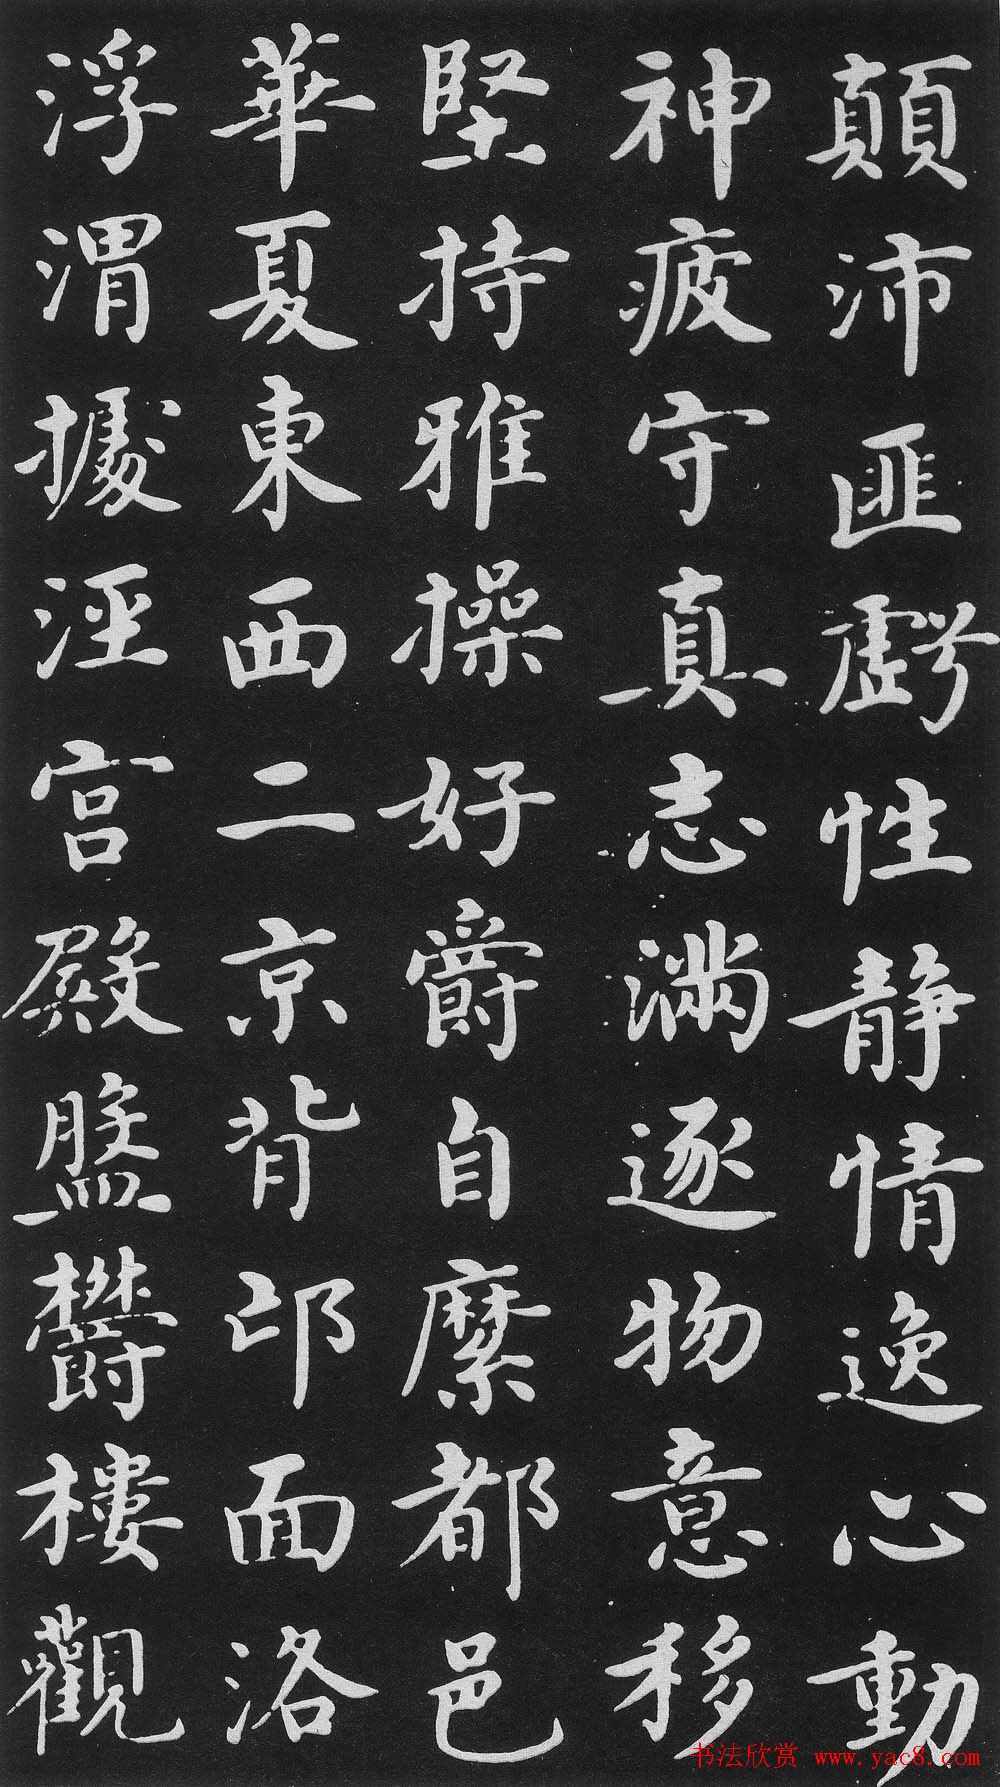 顛沛匪虧性静情逸心動
神疲守真志滿逐物意移
堅持雅操好爵自縻都邑
華夏東西二京背邙面洛
浮渭據涇宮殿盤欝樓觀
书法欣赏 www.yac8.com